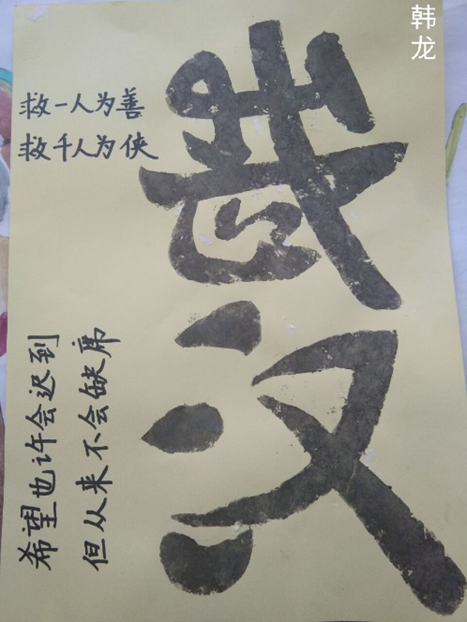 韩龙
武汉
救一人为善
救千人为侠
希望也许会迟到
但从来不会缺席